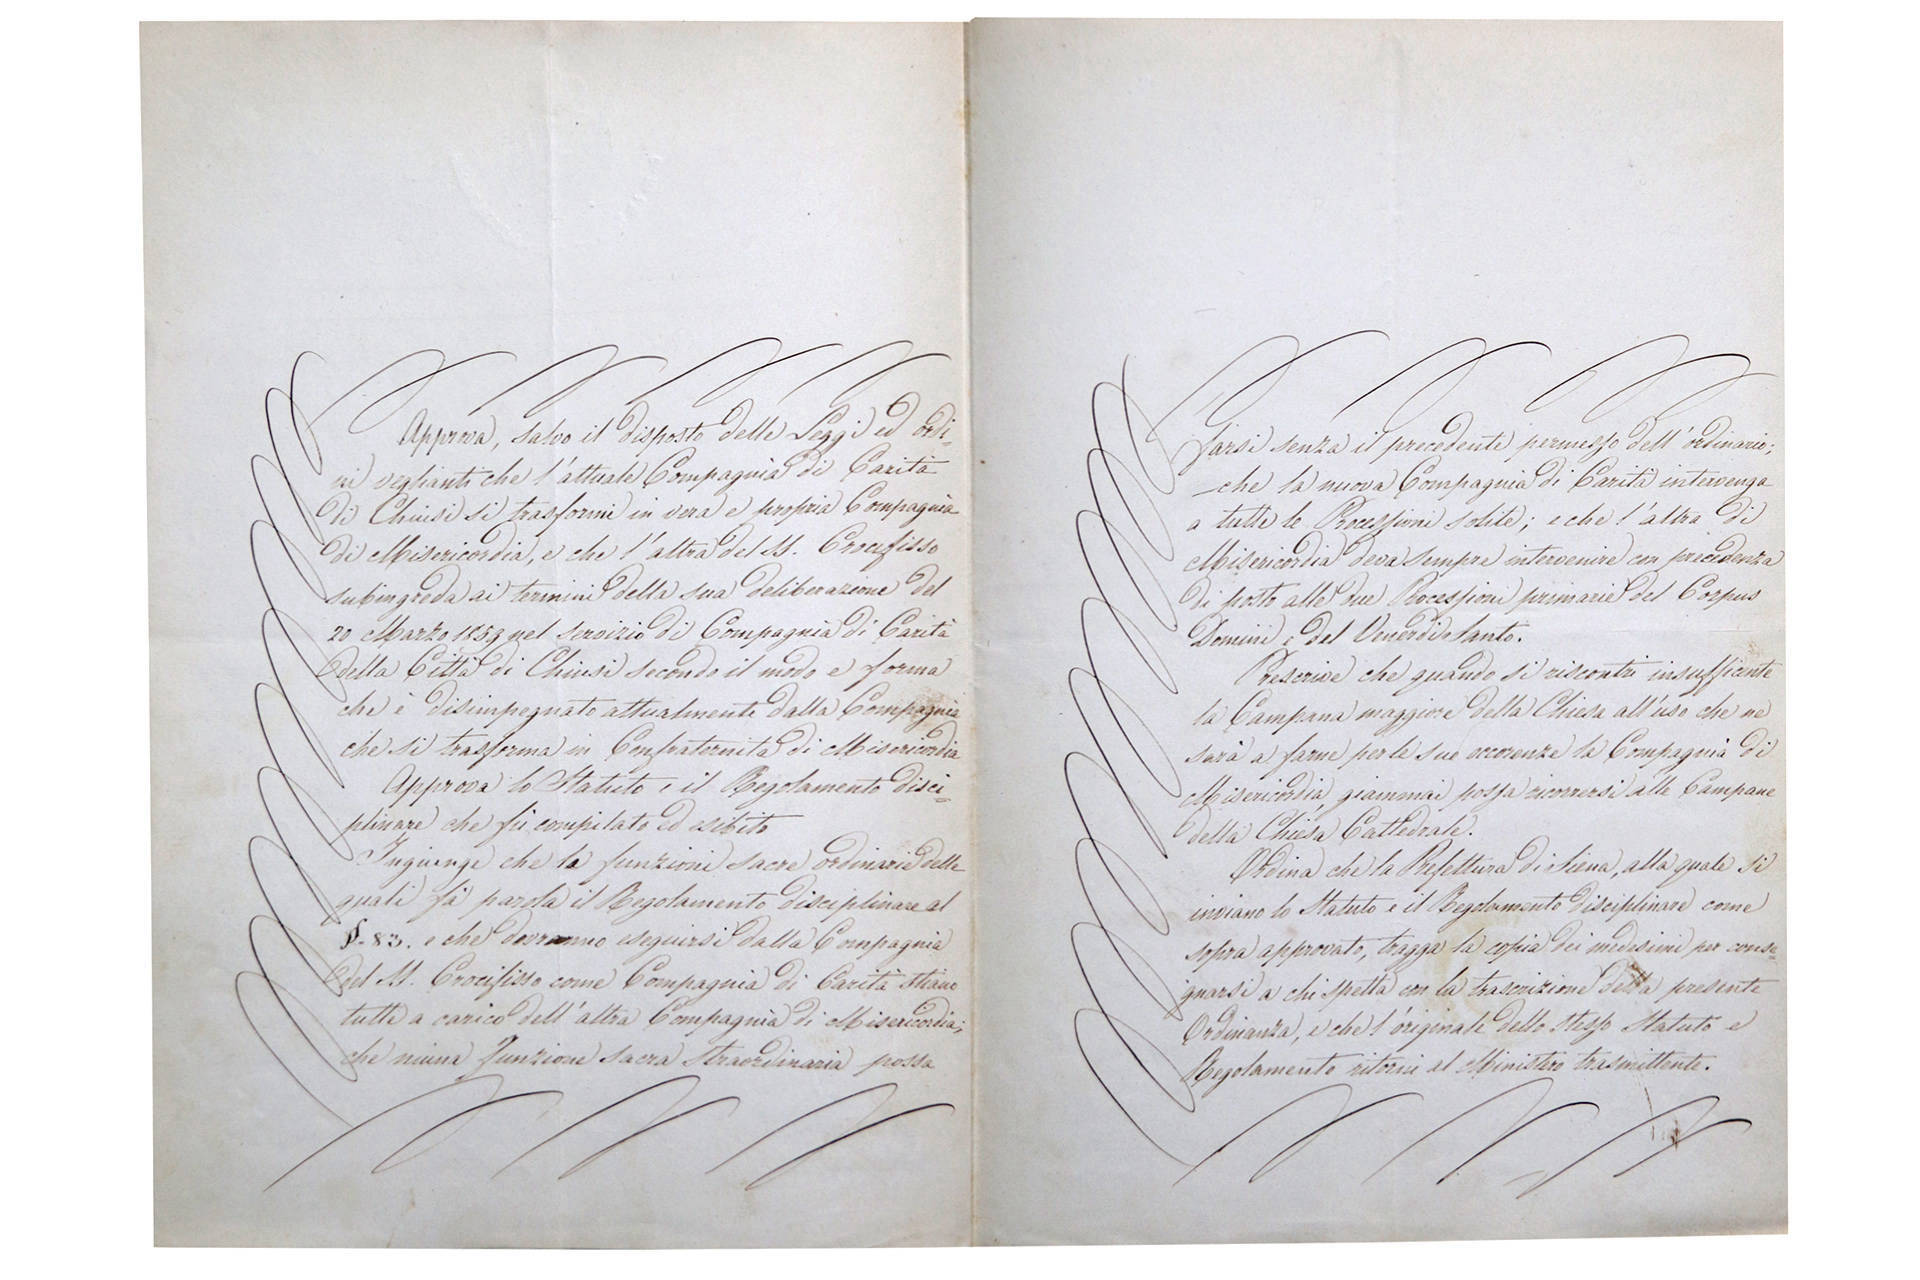 Approva, salvo il disposto delle Leggi ed ordi-
ni veglianti che l'attuale Compagnia di Carità
di Chiusi si trasformi in vera e propria Compagnia
di Misericordia, e che l'altra del SS. Crocifisso
subingreda ai termini della sua deliberazione del
20 Marzo 1859 nel servizio di Compagnia di Carità
della Città di Chiusi secondo il modo e forma
che è disimpegnato attualmente dalla Compagnia
che si trasforma in Confraternita di Misericordia
Approva lo Statuto, e il Regolamento disci-
plinare che fù compilato ed esibito
Ingiunge che le funzioni sacre ordinarie delle
quali fà parola il Regolamento disciplinare al
§. 83. e che dovranno eseguirsi dalla Compagnia
del SS. Crocifisso come Compagnia di Carità stiano
tutte a carico dell'altra Compagnia di Misericordia;
che niuna funzione sacra straordinaria possa
farsi senza il precedente permesso dell'ordinario;
che la nuova Compagnia di Carità intervenga
a tutte le Processioni solite; e che l'altra di
Misericordia deva sempre intervenire con precedenza
di posto alle due Processioni primarie del Corpus
Domini e del Venerdì Santo.
Prescrive che quando si riscontri insufficiente
la Campana maggiore della Chiesa all'uso che ne
sarà a farne per le sue occorenze la Compagnia di
Misericordia, giammai possa ricorrersi alle Campane
della Chiesa Cattedrale.
Ordina che la Prefettura di Siena, alla quale si
inviano lo Statuto e il Regolamento disciplinare come
sopra approvato, tragga la copia dei medesimi per conse-
gnarsi a chi spetta con la trascrizione della presente
Ordinanza, e che l'originale dello stesso Statuto e
Regolamento ritorni al Ministero trasmittente.